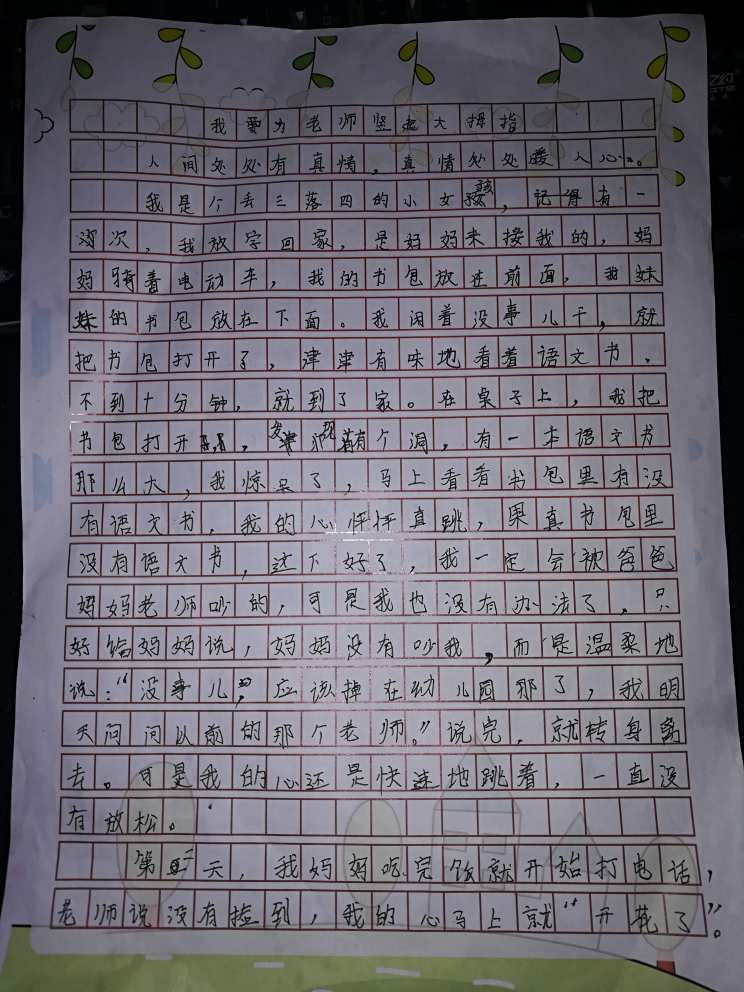 我爱为老师竖起大拇指
人间处处有真情，真情处处暖人心。
我是个丢三落四的小女孩，记得有一
次，我放学回家，是妈妈来接我的，妈
妈骑着电动车，我的书包放在前面，我妹
妹的书包放在下面。我闲着没事儿干，就
把书包打开了，津津有味地看着语文书，
不到十分钟，就到了家。在桌子上，我把
书包打开，发现有个洞，有一本语文书
那么大，我惊呆了，马上看看书包里有没
有语文书，我的心怦怦直跳，果真书包里
没有语文书，这下好了，我一定会被爸爸
妈妈老师吵的，可是我也没有办法了，只
好给妈妈说，妈妈没有吵我，而是温柔地
说：“没事儿，应该掉在幼儿园那了，我明
天问问以前的那个老师。”说完，就转身离
去。可是我的心还是快速地跳着，一直没
有放松。
第二天，我妈妈吃完饭就开始打电话，
老师说没有捡到，我的心马上就“开花了”。